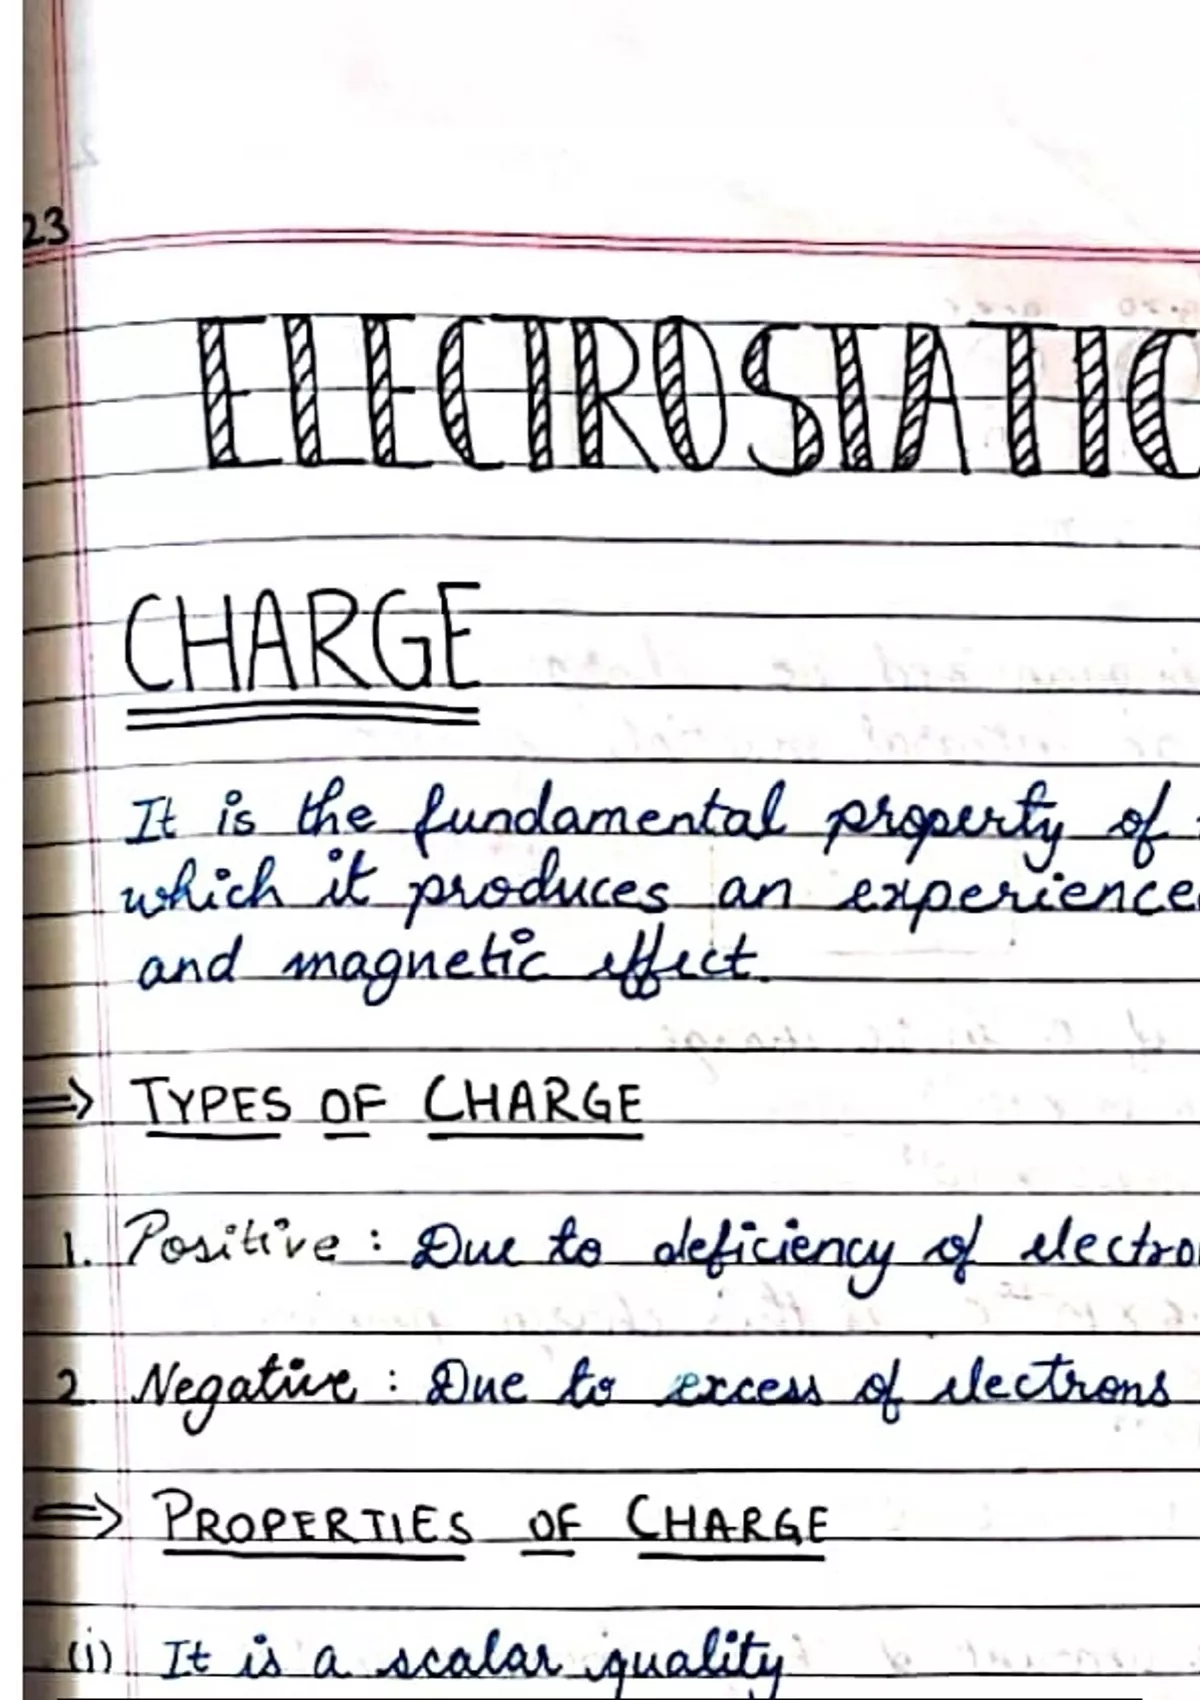 23
ELECTROSTATIC
CHARGE
It is the fundamental property of
which it produces an experience
and magnetic effect.
⇒ TYPES OF CHARGE
1. Positive : Due to deficiency of electro
2. Negative : Due to excess of electrons
⇒ PROPERTIES OF CHARGE
(i) It is a scalar quality